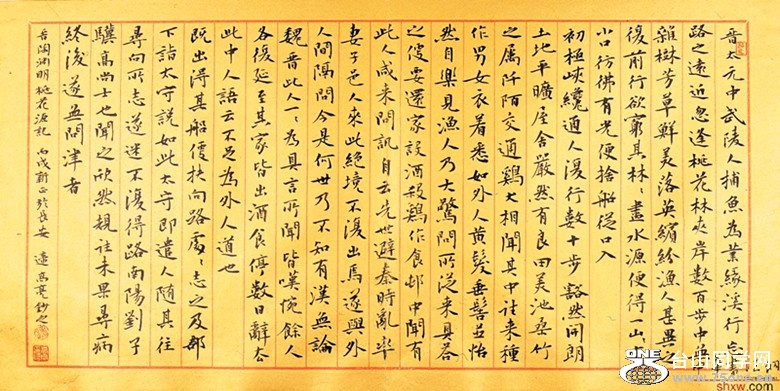 晉太元中武陵人捕魚為業緣溪行忘
路之遠近忽逢桃花林夾岸數百步中
雜樹芳草鮮美落英繽紛漁人甚異之
復前行欲窮其林林盡水源便得一山
小口彷彿有光便捨船從口入
初極峽纔通人復行數十步豁然開朗
土地平曠屋舍嚴然有良田美池桑竹
之屬阡陌交通鷄犬相聞其中往來種
作男女衣著悉如外人黃髮垂髫並怡
然自樂見漁人乃大驚問所從來具答
之便要還家設酒殺鷄作食邨中聞有
此人咸來問訊自云先世避秦時亂率
妻子邑人來此絕境不復出焉遂與外
人間隔問今是何世乃不知有漢無論
魏晉此人一一為具言所聞皆嘆惋餘人
各復延至其家皆出酒食停數日辭去
此中人語云不足為外人道也
既出得其船便扶向路處處志之及郡
下詣太守說如此太守即遣人隨其往
尋向所志遂迷不復得路南陽劉子
驥高尚士也聞之欣然規往未果尋病
終後遂無問津者
晉陶淵明桃花源記 丙戌新正於長安 高亮鈔之
ONE
台山同学网